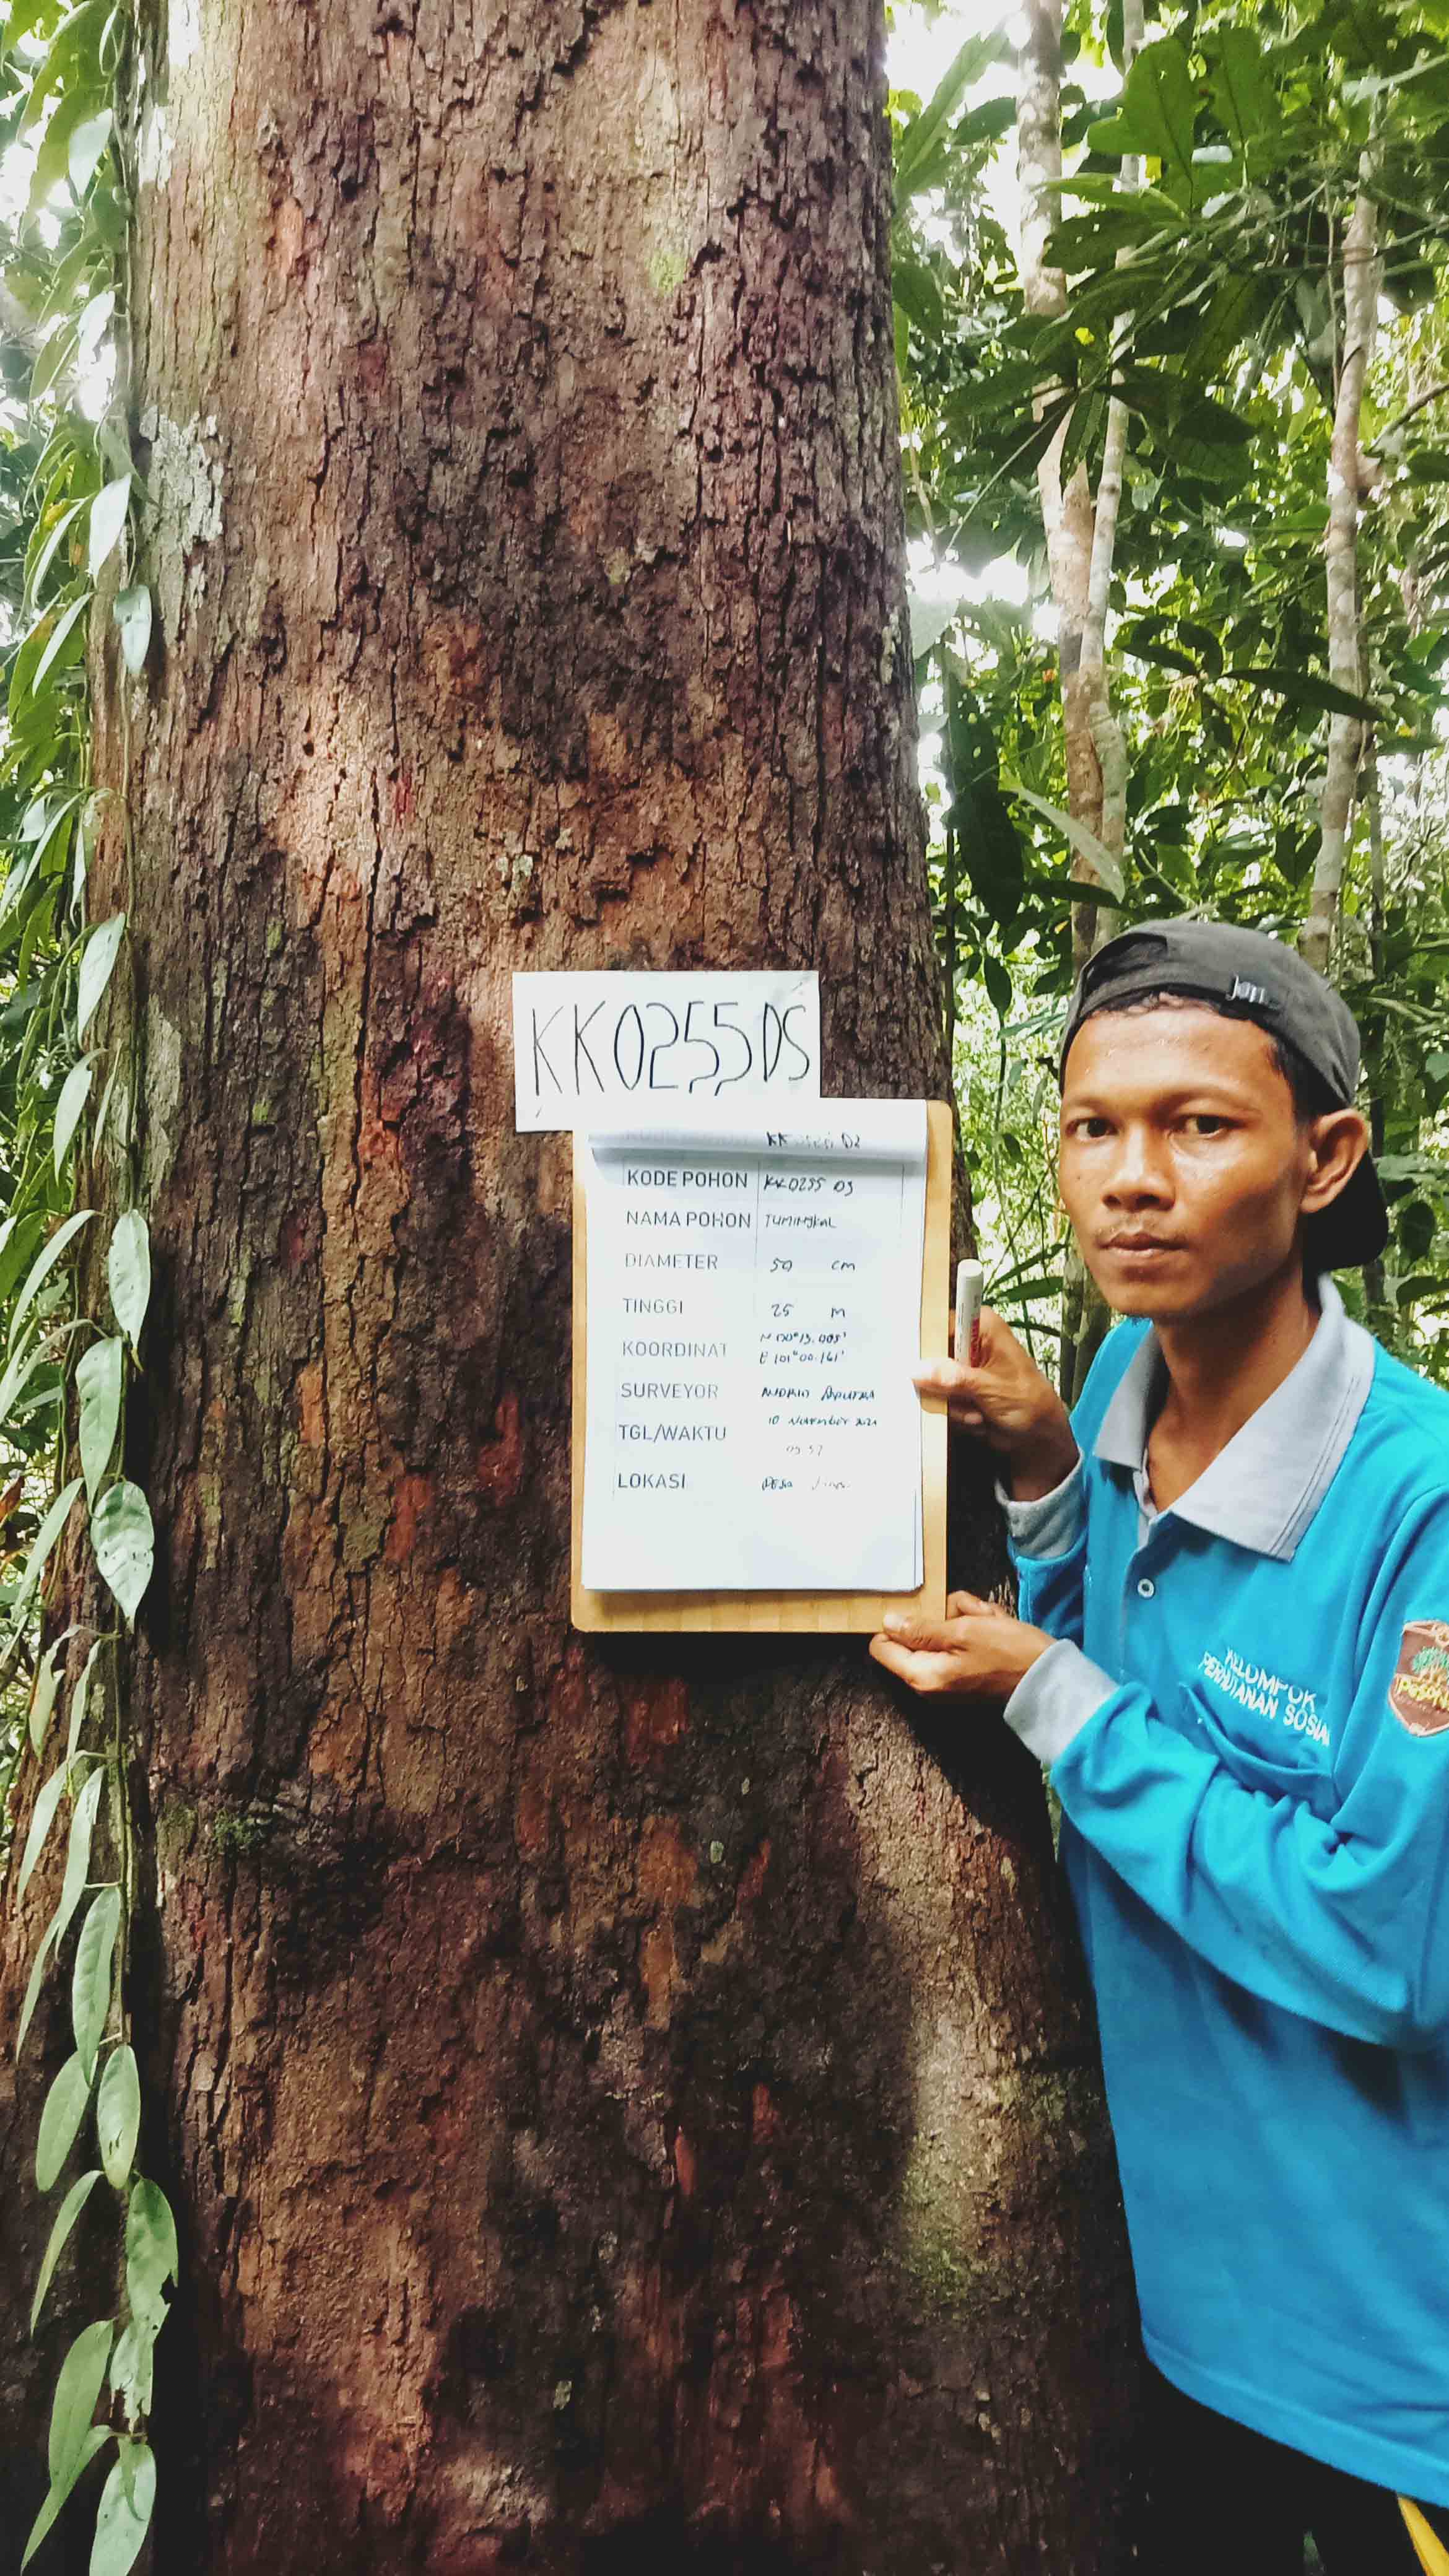 KK0255DS
KODE POHON KK0255 DS
NAMA POHON TUMINGKAL
DIAMETER 50 cm
TINGGI 25 M
KOORDINAT N 00°13.005'
E 101°00.161'
SURVEYOR
TGL/WAKTU 10 November 2021
09 57
LOKASI DESA
KELOMPOK
PERHUTANAN SOSIAL